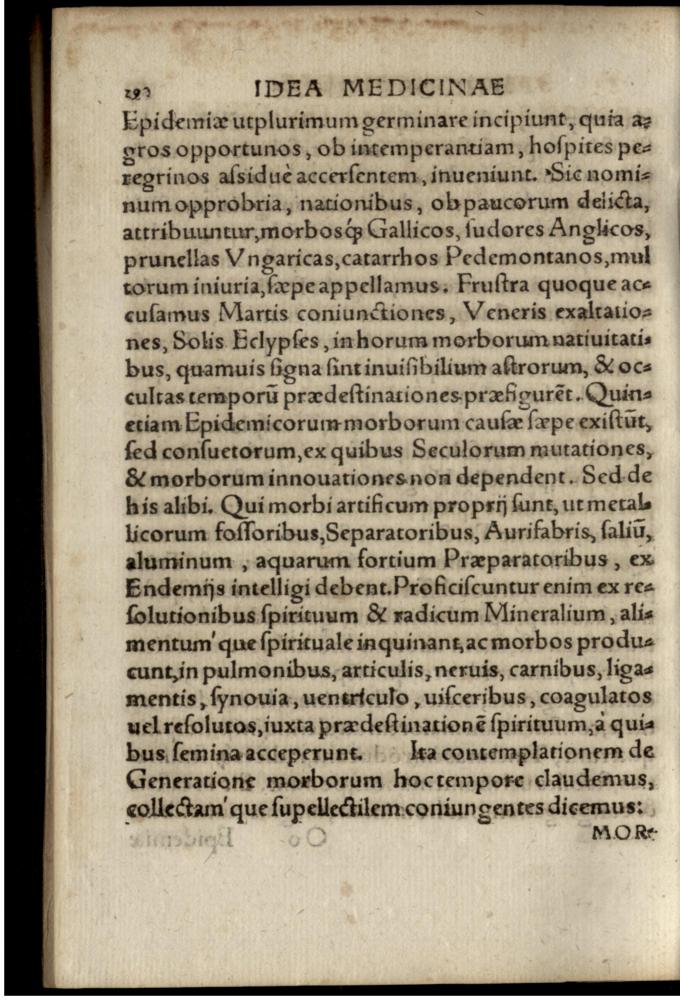 290 IDEA MEDICINAE
Epidemiæ utplurimum germinare incipiunt, quia a⸗
gros opportunos, ob intemperantiam, hoſpites pe⸗
regrinos aſsiduè accerſentem, inueniunt. Sic nomi⸗
num opprobria, nationibus, ob paucorum delicta,
attribuuntur, morbosq́ꝫ Gallicos, ſudores Anglicos,
prunellas Vngaricas, catarrhos Pedemontanos, mul
torum iniuria, ſæpe appellamus. Fruſtra quoque ac⸗
cuſamus Martis coniunctiones, Veneris exaltatio⸗
nes, Solis Eclypſes, in horum morborum natiuitati⸗
bus, quamuis ſigna ſint inuiſibilium aſtrorum, & oc⸗
cultas temporũ prædeſtinationes præfigurẽt. Quin⸗
etiam Epidemicorum morborum cauſæ ſæpe exiſtũt,
ſed conſuetorum, ex quibus Seculorum mutationes,
& morborum innouationes non dependent. Sed de
his alibi. Qui morbi artificum proprij ſunt, ut metal⸗
licorum foſſoribus, Separatoribus, Aurifabris, ſaliũ,
aluminum, aquarum fortium Præparatoribus, ex
Endemijs intelligi debent. Proficiſcuntur enim ex re⸗
ſolutionibus ſpirituum & radicum Mineralium, ali⸗
mentum' que ſpirituale inquinant, ac morbos produ⸗
cunt, in pulmonibus, articulis, neruis, carnibus, liga⸗
mentis, ſynouia, uentriculo, uiſceribus, coagulatos
uel reſolutos, iuxta prædeſtinationẽ ſpirituum, à qui⸗
bus ſemina acceperunt. Ita contemplationem de
Generatione morborum hoc tempore claudemus,
collectam' que ſupellectilem coniungentes dicemus:
MOR⸗